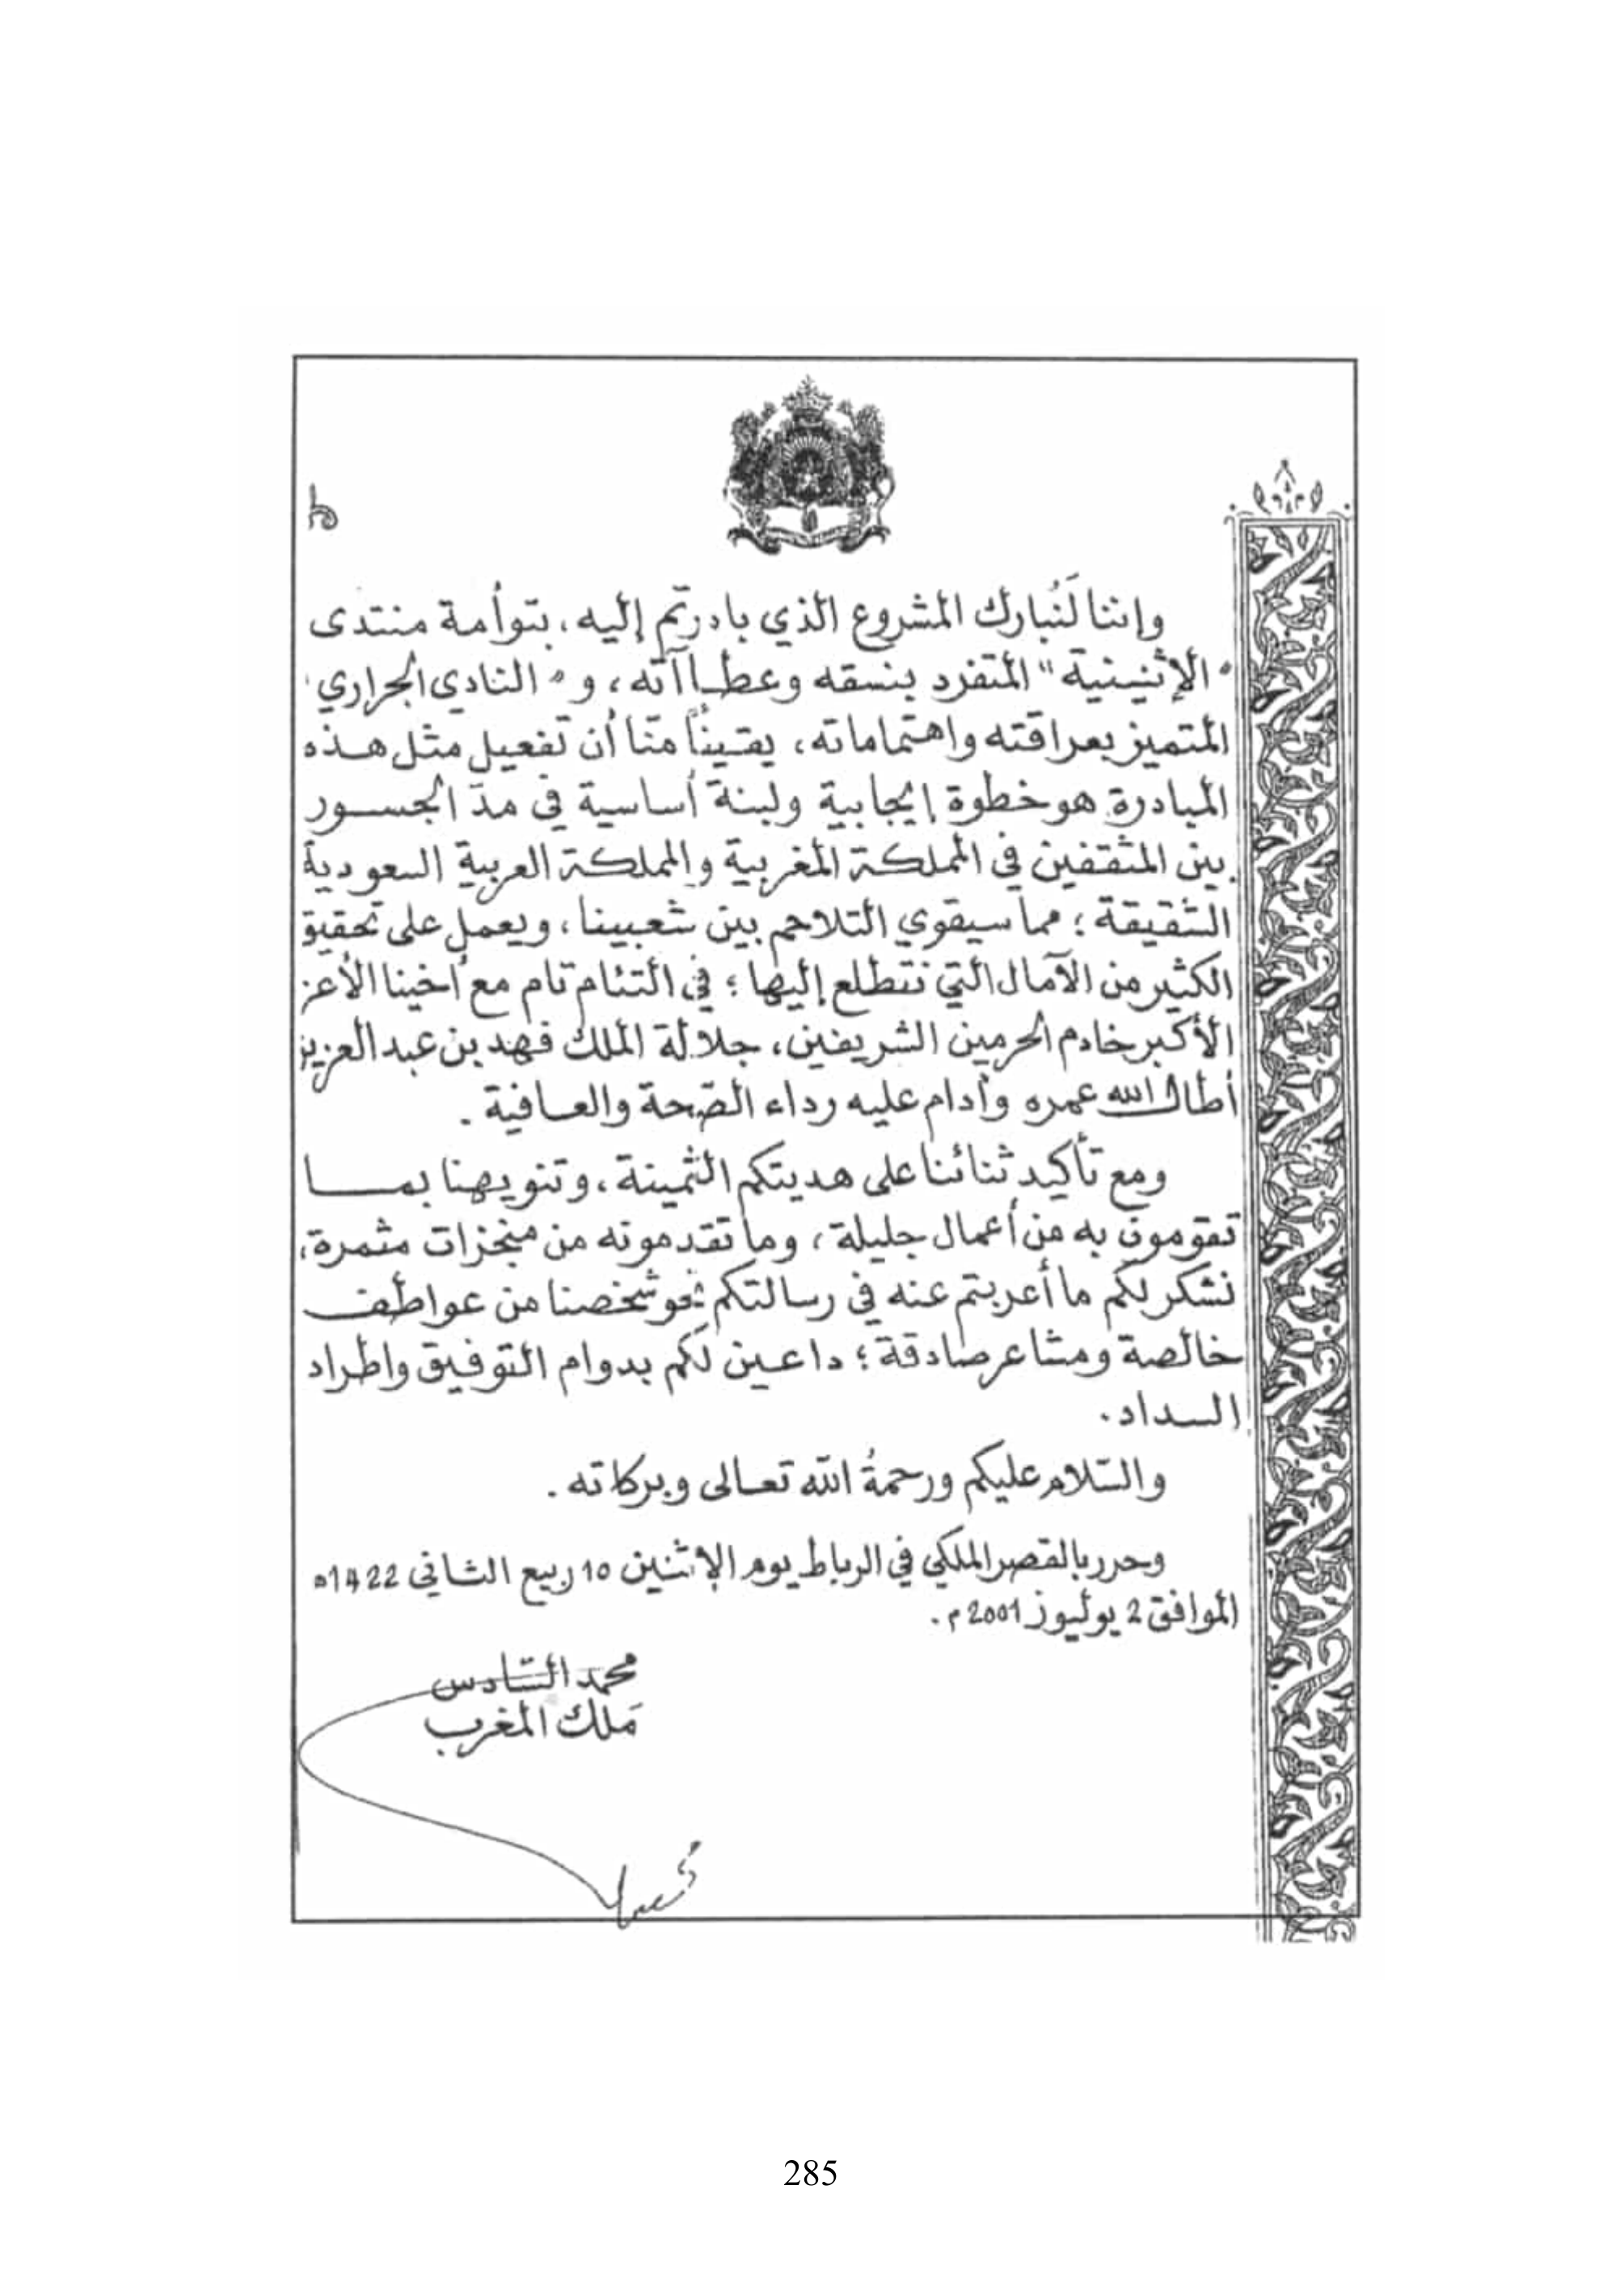 وإننا لَنُبارك المشروع الذي بادرتم إليه، بتوأمة منتدى
"الإثنينية" المتفرد بنسقه وعطاآته، و "النادي الجراري"
المتميز بعراقته واهتماماته، يقيناً منّا أن تفعيل مثل هذه
المبادرة هو خطوة إيجابية ولبنة أساسية في مدّ الجسور
بين المثقفين في المملكة المغربية والمملكة العربية السعودية
الشقيقة؛ مما سيقوي التلاحم بين شعبينا، ويعمل على تحقيق
الكثير من الآمال التي نتطلع إليها؛ في التئام تام مع أخينا الأعز
الأكبر خادم الحرمين الشريفين، جلالة الملك فهد بن عبد العزيز
أطال الله عمره وأدام عليه رداء الصّحة والعافية.
ومع تأكيد ثنائنا على هديتكم الثمينة، وتنويهنا بما
تقومون به من أعمال جليلة، وما تقدمونه من منجزات مثمرة،
نشكر لكم ما أعربتم عنه في رسالتكم نحو شخصنا من عواطف
خالصة ومشاعر صادقة؛ داعين لكم بدوام التوفيق واطراد
السداد.
والسّلام عليكم ورحمةُ الله تعالى وبركاته.
وحرر بالقصر الملكي في الرباط يوم الإثنين 10 ربيع الثاني 1422هـ
الموافق 2 يوليوز 2001م.
محمد السّادس
ملك المغرب
285